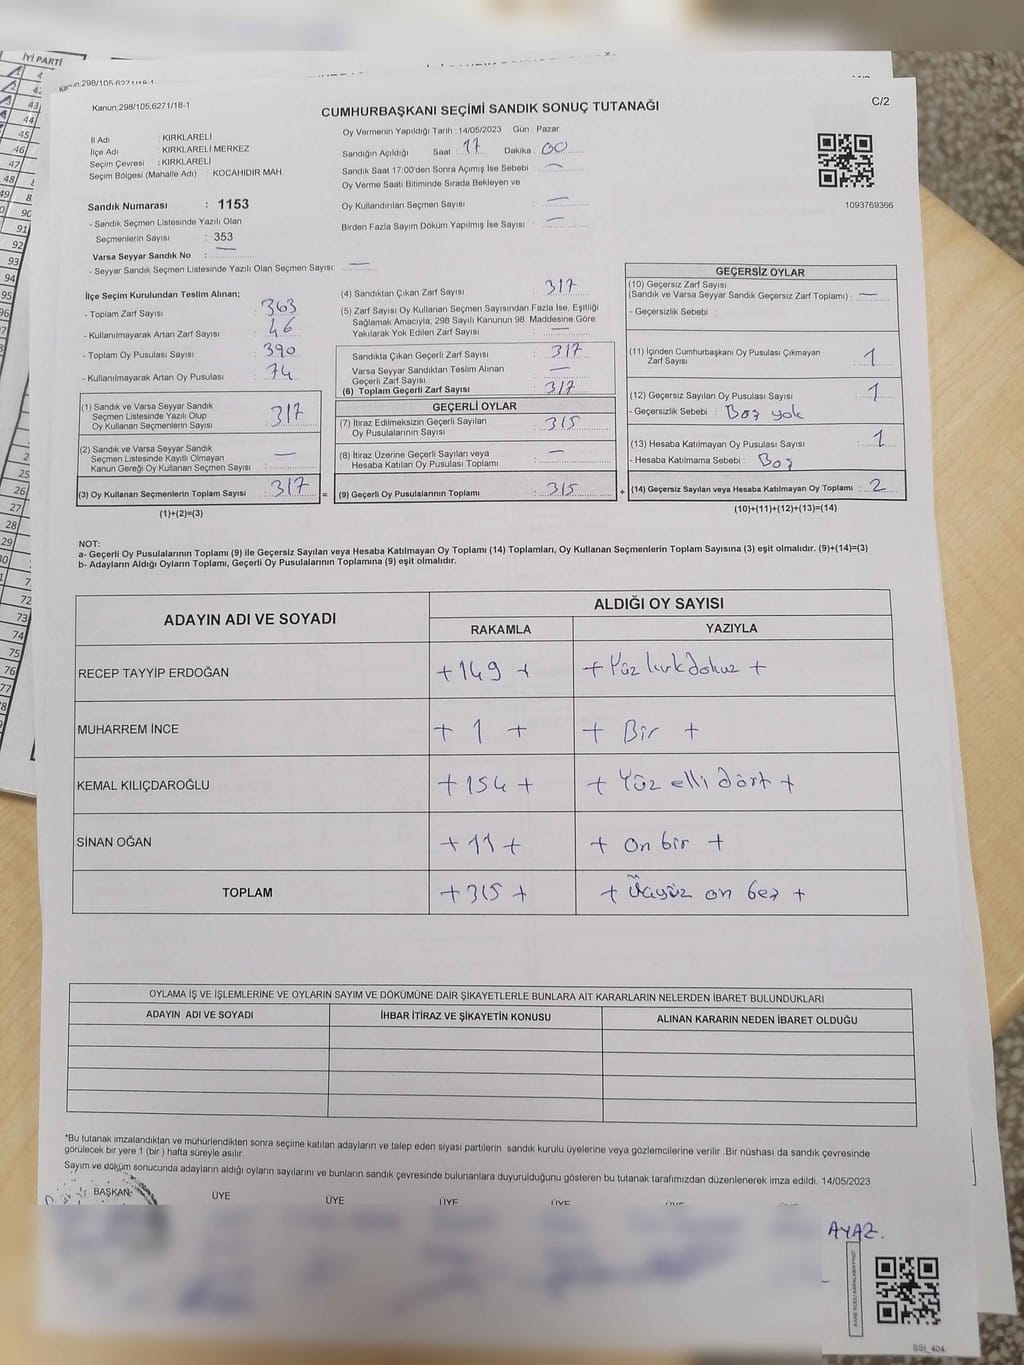 İYİ PARTİ
Kanun;298/105;6271/18-1
Kanun;298/105;6271/18-1
C/2
CUMHURBAŞKANI SEÇİMİ SANDIK SONUÇ TUTANAĞI
İl Adı : KIRKLARELİ
İlçe Adı : KIRKLARELİ MERKEZ
Seçim Çevresi : KIRKLARELİ
Seçim Bölgesi (Mahalle Adı) : KOCAHIDIR MAH.
Sandık Numarası : 1153
- Sandık Seçmen Listesinde Yazılı Olan
Seçmenlerin Sayısı : 353
Varsa Seyyar Sandık No : —
- Seyyar Sandık Seçmen Listesinde Yazılı Olan Seçmen Sayısı: —
Oy Vermenin Yapıldığı Tarih : 14/05/2023 Gün : Pazar
Sandığın Açıldığı Saat : 17 Dakika : 00
Sandık Saat 17:00'den Sonra Açımış İse Sebebi : —
Oy Verme Saati Bitiminde Sırada Bekleyen ve
Oy Kullandırılan Seçmen Sayısı : —
Birden Fazla Sayım Döküm Yapılmış İse Sayısı : —
1093769366
İlçe Seçim Kurulundan Teslim Alınan;
- Toplam Zarf Sayısı : 363
- Kullanılmayarak Artan Zarf Sayısı : 46
- Toplam Oy Pusulası Sayısı : 390
- Kullanılmayarak Artan Oy Pusulası : 74
(1) Sandık ve Varsa Seyyar Sandık
Seçmen Listesinde Yazılı Olup
Oy Kullanan Seçmenlerin Sayısı : 317
(2) Sandık ve Varsa Seyyar Sandık
Seçmen Listesinde Kayıtlı Olmayan
Kanun Gereği Oy Kullanan Seçmen Sayısı : —
(3) Oy Kullanan Seçmenlerin Toplam Sayısı : 317
(1)+(2)=(3)
=
(4) Sandıktan Çıkan Zarf Sayısı : 317
(5) Zarf Sayısı Oy Kullanan Seçmen Sayısından Fazla İse, Eşitliği
Sağlamak Amacıyla; 298 Sayılı Kanunun 98. Maddesine Göre
Yakılarak Yok Edilen Zarf Sayısı : —
Sandıkta Çıkan Geçerli Zarf Sayısı : 317
Varsa Seyyar Sandıktan Teslim Alınan
Geçerli Zarf Sayısı : —
(6) Toplam Geçerli Zarf Sayısı : 317
GEÇERLİ OYLAR
(7) İtiraz Edilmeksizin Geçerli Sayılan
Oy Pusulalarının Sayısı : 315
(8) İtiraz Üzerine Geçerli Sayılan veya
Hesaba Katılan Oy Pusulası Toplamı : —
(9) Geçerli Oy Pusulalarının Toplamı : 315
+
GEÇERSİZ OYLAR
(10) Geçersiz Zarf Sayısı
(Sandık ve Varsa Seyyar Sandık Geçersiz Zarf Toplamı) : —
- Geçersizlik Sebebi :
(11) İçinden Cumhurbaşkanı Oy Pusulası Çıkmayan
Zarf Sayısı : 1
(12) Geçersiz Sayılan Oy Pusulası Sayısı : 1
- Geçersizlik Sebebi : Boş yok
(13) Hesaba Katılmayan Oy Pusulası Sayısı : 1
- Hesaba Katılmama Sebebi : Boş
(14) Geçersiz Sayılan veya Hesaba Katılmayan Oy Toplamı : 2
(10)+(11)+(12)+(13)=(14)
NOT:
a- Geçerli Oy Pusulalarının Toplamı (9) ile Geçersiz Sayılan veya Hesaba Katılmayan Oy Toplamı (14) Toplamları, Oy Kullanan Seçmenlerin Toplam Sayısına (3) eşit olmalıdır. (9)+(14)=(3)
b- Adayların Aldığı Oyların Toplamı, Geçerli Oy Pusulalarının Toplamına (9) eşit olmalıdır.
ADAYIN ADI VE SOYADI
ALDIĞI OY SAYISI
RAKAMLA YAZIYLA
RECEP TAYYİP ERDOĞAN +149+ +Yüz kırkdokuz+
MUHARREM İNCE +1+ +Bir+
KEMAL KILIÇDAROĞLU +154+ +Yüz elli dört+
SİNAN OĞAN +11+ +On bir+
TOPLAM +315+ +Üçyüz on beş+
OYLAMA İŞ VE İŞLEMLERİNE VE OYLARIN SAYIM VE DÖKÜMÜNE DAİR ŞİKAYETLERLE BUNLARA AİT KARARLARIN NELERDEN İBARET BULUNDUKLARI
ADAYIN ADI VE SOYADI İHBAR İTİRAZ VE ŞİKAYETİN KONUSU ALINAN KARARIN NEDEN İBARET OLDUĞU
*Bu tutanak imzalandıktan ve mühürlendikten sonra seçime katılan adayların ve talep eden siyasi partilerin sandık kurulu üyelerine veya gözlemcilerine verilir. Bir nüshası da sandık çevresinde
görülecek bir yere 1 (bir ) hafta süreyle asılır.
Sayım ve döküm sonucunda adayların aldığı oyların sayılarını ve bunların sandık çevresinde bulunanlara duyurulduğunu gösteren bu tutanak tarafımızdan düzenlenerek imza edildi. 14/05/2023
BAŞKAN ÜYE ÜYE ÜYE ÜYE ÜYE ÜYE
AYAZ.
SSI_404